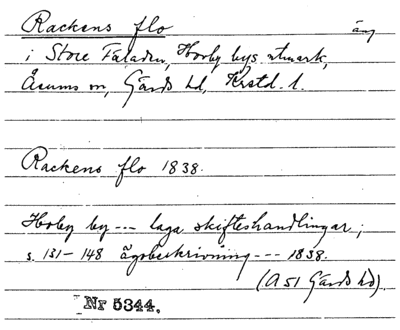 Rackens flo äng
i Store Fäladen, Horby bys utmark,
Åsums sn, Gärds hd, Krstd. l.
Rackens flo 1838.
Horby by --- laga skifteshandlingar;
s. 131-148 ägobeskrivning --- 1838.
(A 51 Gärds hd).
Nr 5344.